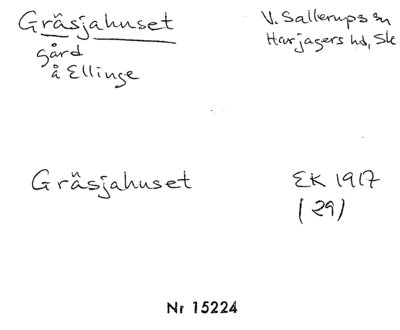 Gräsjahuset
gård
å Ellinge
V. Sallerups sn
Harjagers hd, Sk
Gräsjahuset
EK 1917
(29)
Nr 15224